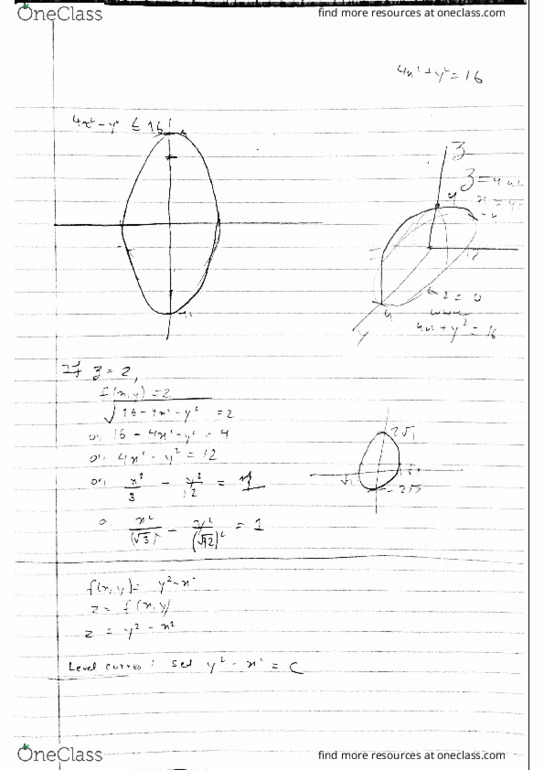 OneClass
find more resources at oneclass.com
4x² + y² = 16
4x² - y² ≤ 16
z
y
z = 0
4x² + y² = 16
If z = 2,
f(x,y) = 2
√16 - 4x² - y² = 2
or 16 - 4x² - y² = 4
or 4x² - y² = 12
or x²/3 - y²/12 = 1
x²/(√3)² - y²/(√12)² = 1
f(x,y) = y² - x²
z = f(x,y)
z = y² - x²
Level curves: set y² - x² = C
OneClass
find more resources at oneclass.com